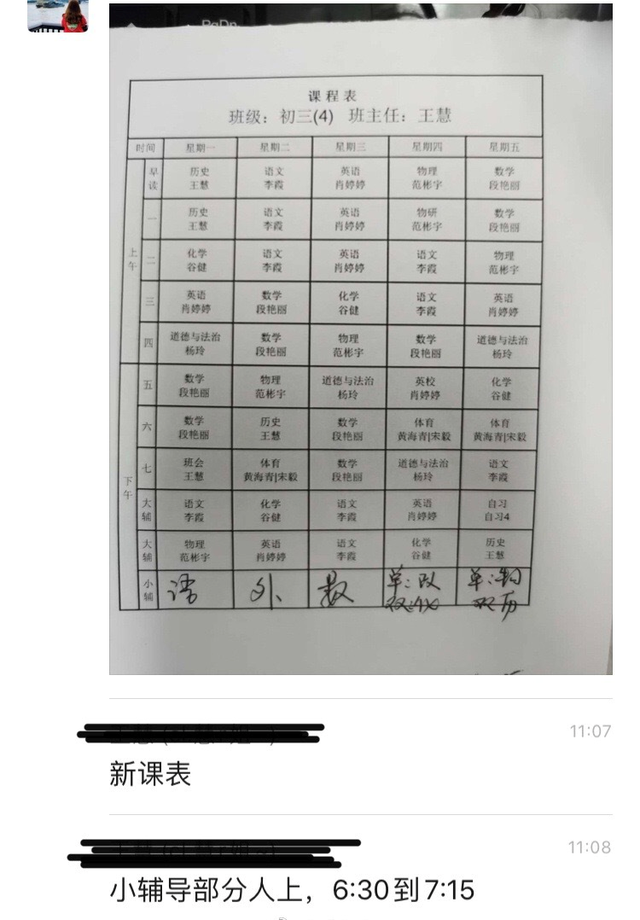 PgDn
课程表
班级：初三(4) 班主任：王慧
时间 星期一 星期二 星期三 星期四 星期五
上午
早读 历史 语文 英语 物理 数学
王慧 李霞 肖婷婷 范彬宇 段艳丽
一 历史 语文 英语 物研 数学
王慧 李霞 肖婷婷 范彬宇 段艳丽
二 化学 语文 英语 语文 物理
谷健 李霞 肖婷婷 李霞 范彬宇
三 英语 数学 化学 语文 英语
肖婷婷 段艳丽 谷健 李霞 肖婷婷
四 道德与法治 数学 物理 数学 道德与法治
杨玲 段艳丽 范彬宇 段艳丽 杨玲
下午
五 数学 物理 道德与法治 英校 化学
段艳丽 范彬宇 杨玲 肖婷婷 谷健
六 数学 历史 数学 体育 体育
段艳丽 王慧 段艳丽 黄海青|宋毅 黄海青|宋毅
七 班会 体育 数学 道德与法治 语文
王慧 黄海青|宋毅 段艳丽 杨玲 李霞
大辅 语文 化学 语文 英语 自习
李霞 谷健 李霞 肖婷婷 自习4
大辅 物理 英语 语文 化学 历史
范彬宇 肖婷婷 李霞 谷健 王慧
小辅 语 外 数 单：政 单：物
双：化 双历
11:07
新课表
11:08
小辅导部分人上，6:30到7:15